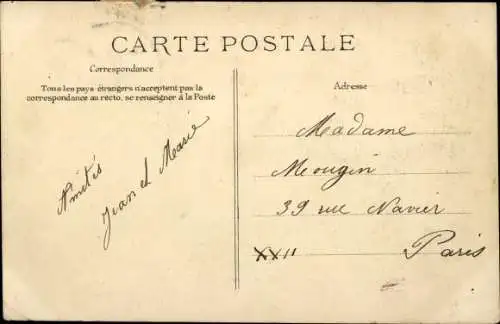 CARTE POSTALE
Correspondance
Tous les pays étrangers n'acceptent pas la
correspondance au recto, se renseigner à la Poste
Jean et Marie
Adresse
Madame
Mougin
39 rue Navier
XXII
Paris